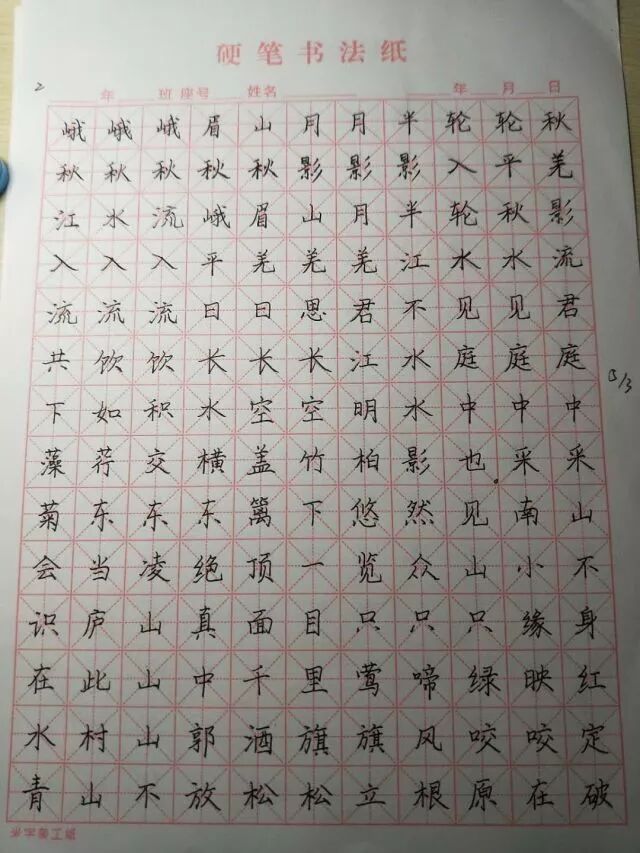 硬笔书法纸
2 年 班 座号 姓名 年 月 日
峨峨峨眉山月月半轮轮秋
秋秋秋秋秋影影影入平羌
江水流峨眉山月半轮秋影
入入入平羌羌羌江水水流
流流流日日思君不见见君
共饮饮长长长江水庭庭庭
下如积水空空明水中中中
藻荇交横盖竹柏影也。采采
菊东东东篱下悠然见南山
会当凌绝顶一览众山小不
识庐山真面目只只只缘身
在此山中千里莺啼绿映红
水村山郭酒旗旗风咬咬定
青山不放松松立根原在破